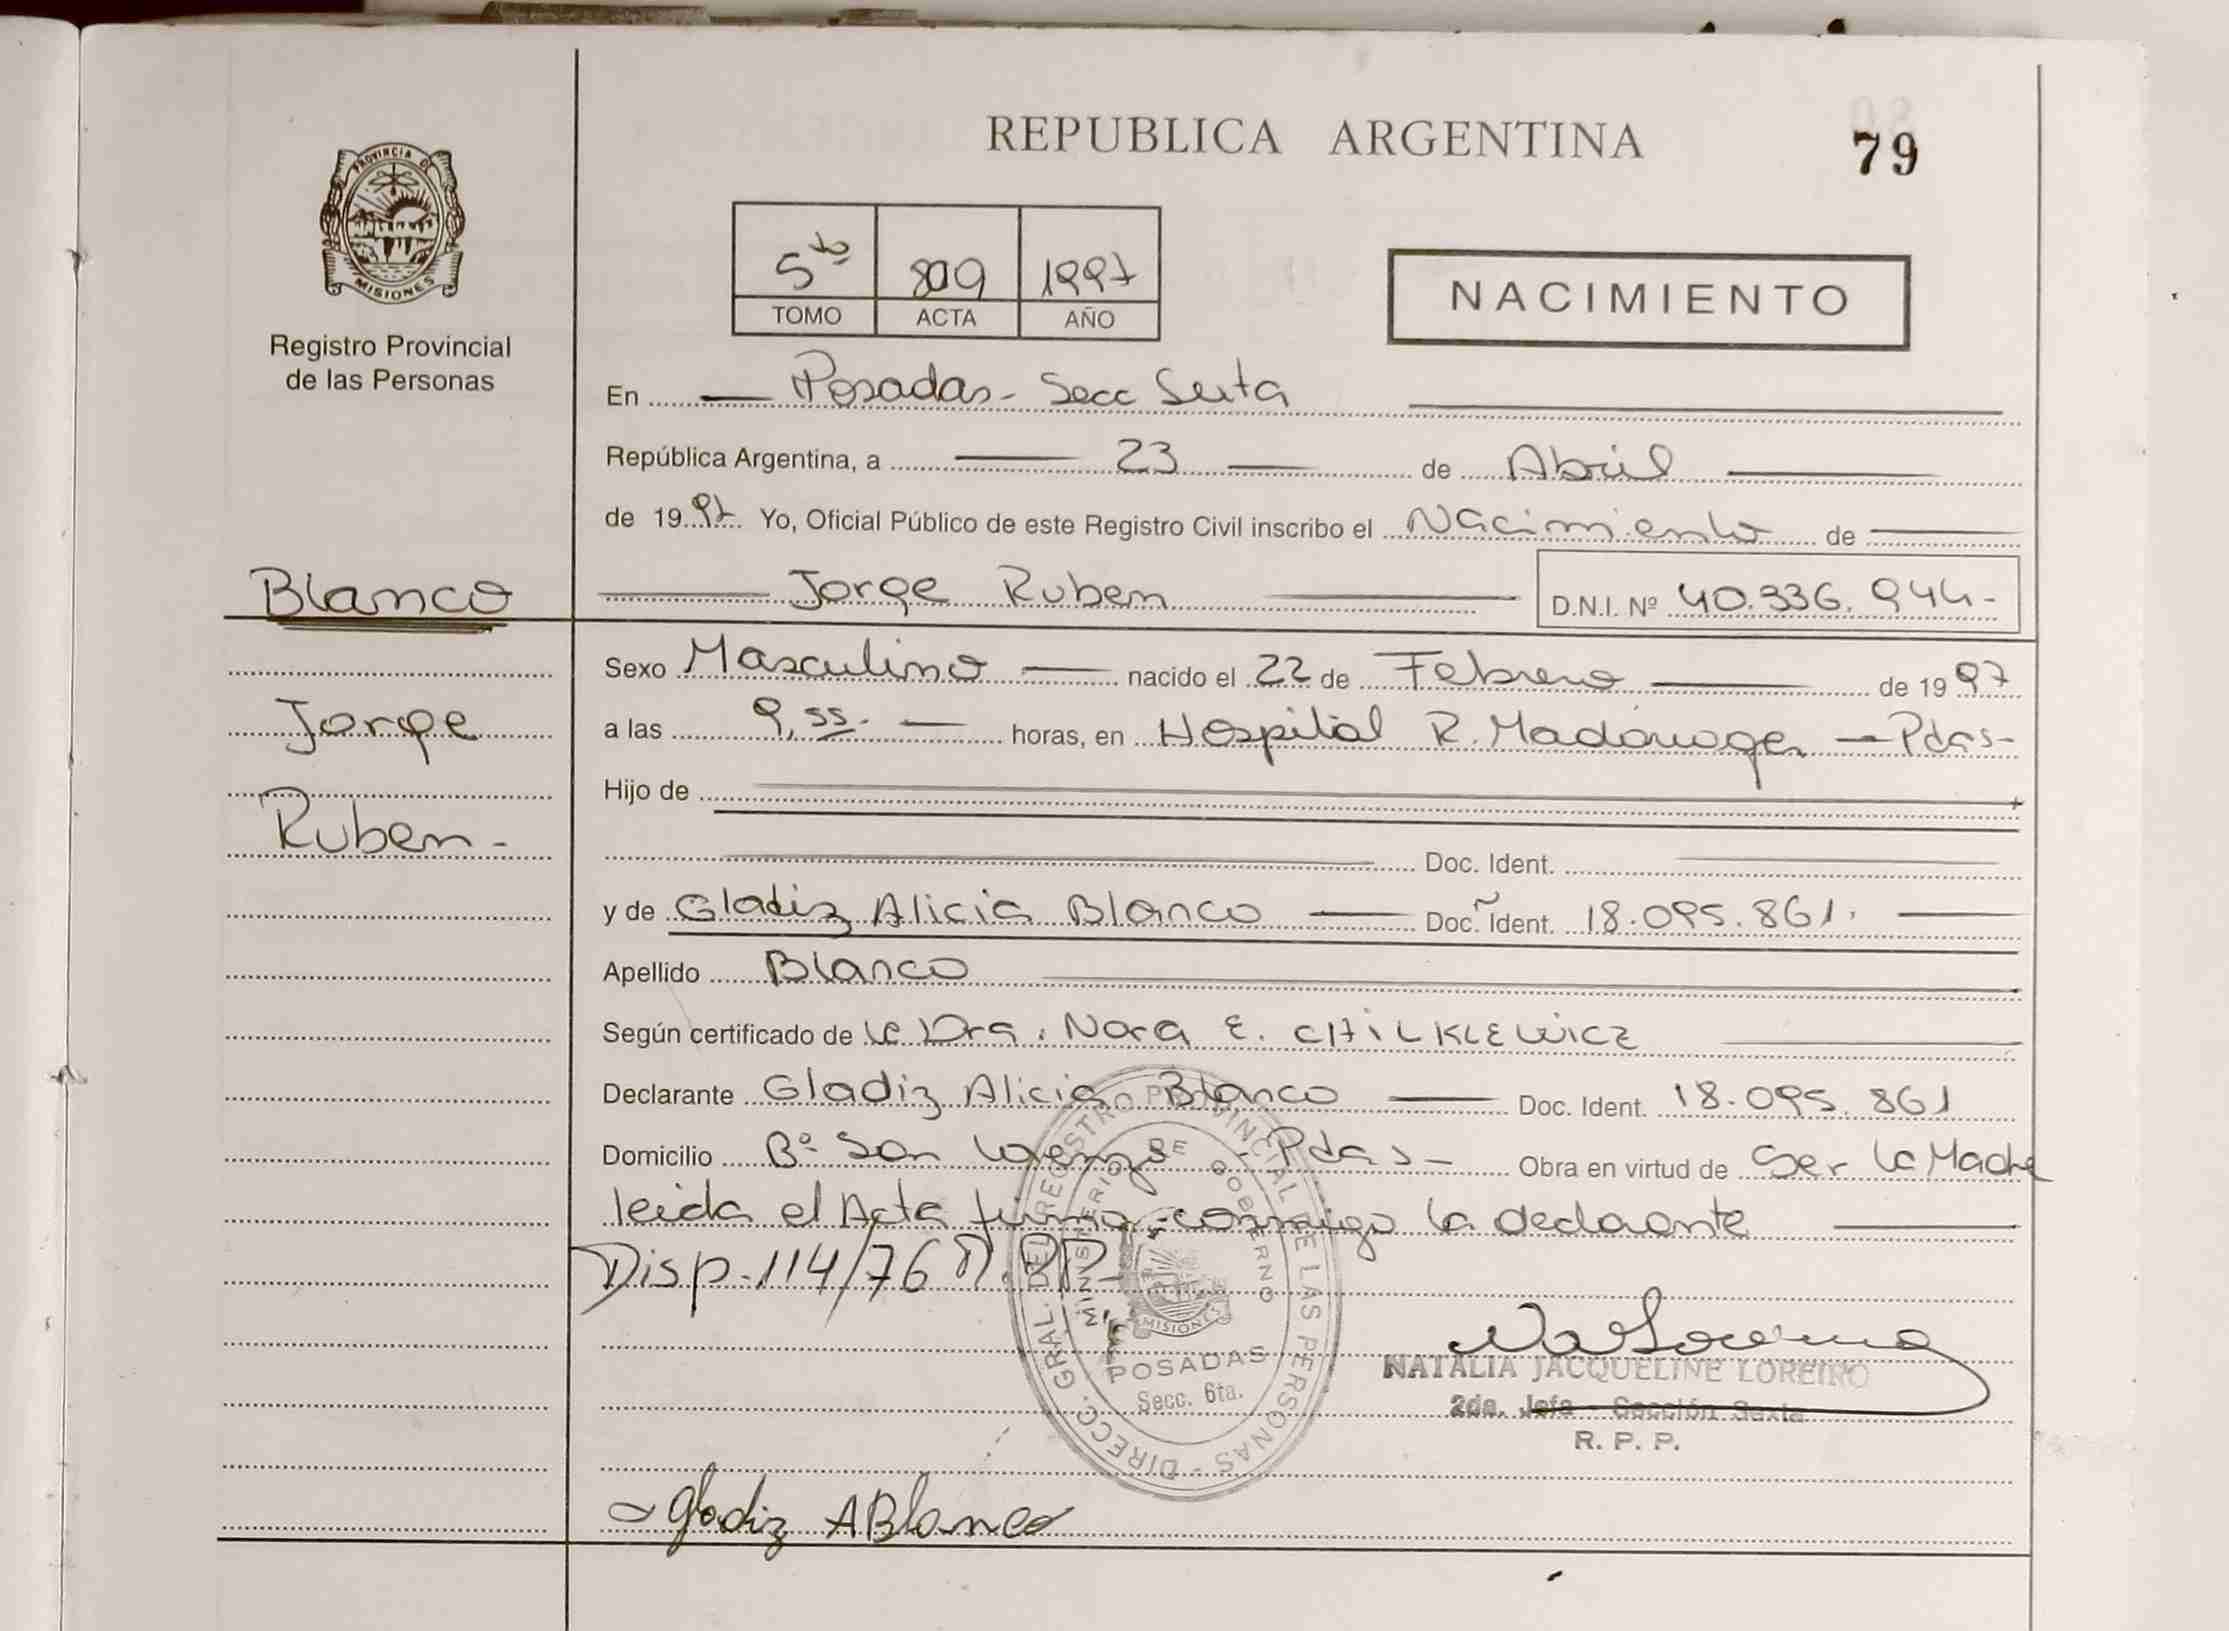 REPUBLICA ARGENTINA
79
PROVINCIA DE
MISIONES
Registro Provincial
de las Personas
5to 809 1997
TOMO ACTA AÑO
NACIMIENTO
En Posadas - Secc Sexta
República Argentina, a 23 de Abril
de 1997 Yo, Oficial Público de este Registro Civil inscribo el Nacimiento de
Blanco
Jorge Ruben D.N.I. Nº 40.336.944-
Sexo Masculino nacido el 22 de Febrero de 1997
Jorge
a las 9,55. horas, en Hospital R. Madariaga - Pdas-
Hijo de
Ruben-
Doc. Ident.
y de Gladiz Alicia Blanco Doc. Ident. 18.095.861.
Apellido Blanco
Según certificado de la Dra. Nora E. CHILKLEWICZ
Declarante Gladiz Alicia Blanco Doc. Ident. 18.095.861
Domicilio Bº San Lorenzo - Pdas - Obra en virtud de Ser la Madre
leida el Acta firma conmigo la declarante
Disp. 114/76
DIRECC. GRAL. DEL REGISTRO PROVINCIAL DE LAS PERSONAS -
MINISTERIO DE GOBIERNO
MISIONES
POSADAS
Secc. 6ta.
NATALIA JACQUELINE LOREIRO
2da. Jefa - Sección Sexta
R. P. P.
Gladiz A Blanco